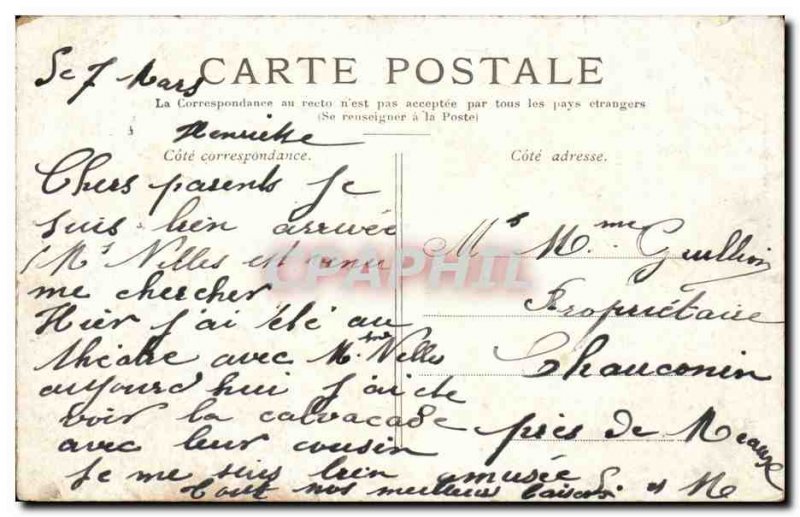 CARTE POSTALE
La Correspondance au recto n'est pas acceptée par tous les pays étrangers
(Se renseigner à la Poste)
Côté correspondance.
Côté adresse.
7 Mars
Henriette
Chers parents Je
suis bien arrivée
Mr Nelles est venu
me chercher
Hier j'ai été au
théatre avec Mme Nelles
aujourd'hui j'ai été
voir la calvacade
avec leur cousin
Je me suis bien amusée
Tout nos meilleurs baisers
Mr Mme Guillion
Propriétaire
Chauconin
près de Meaux
CPAPHIL